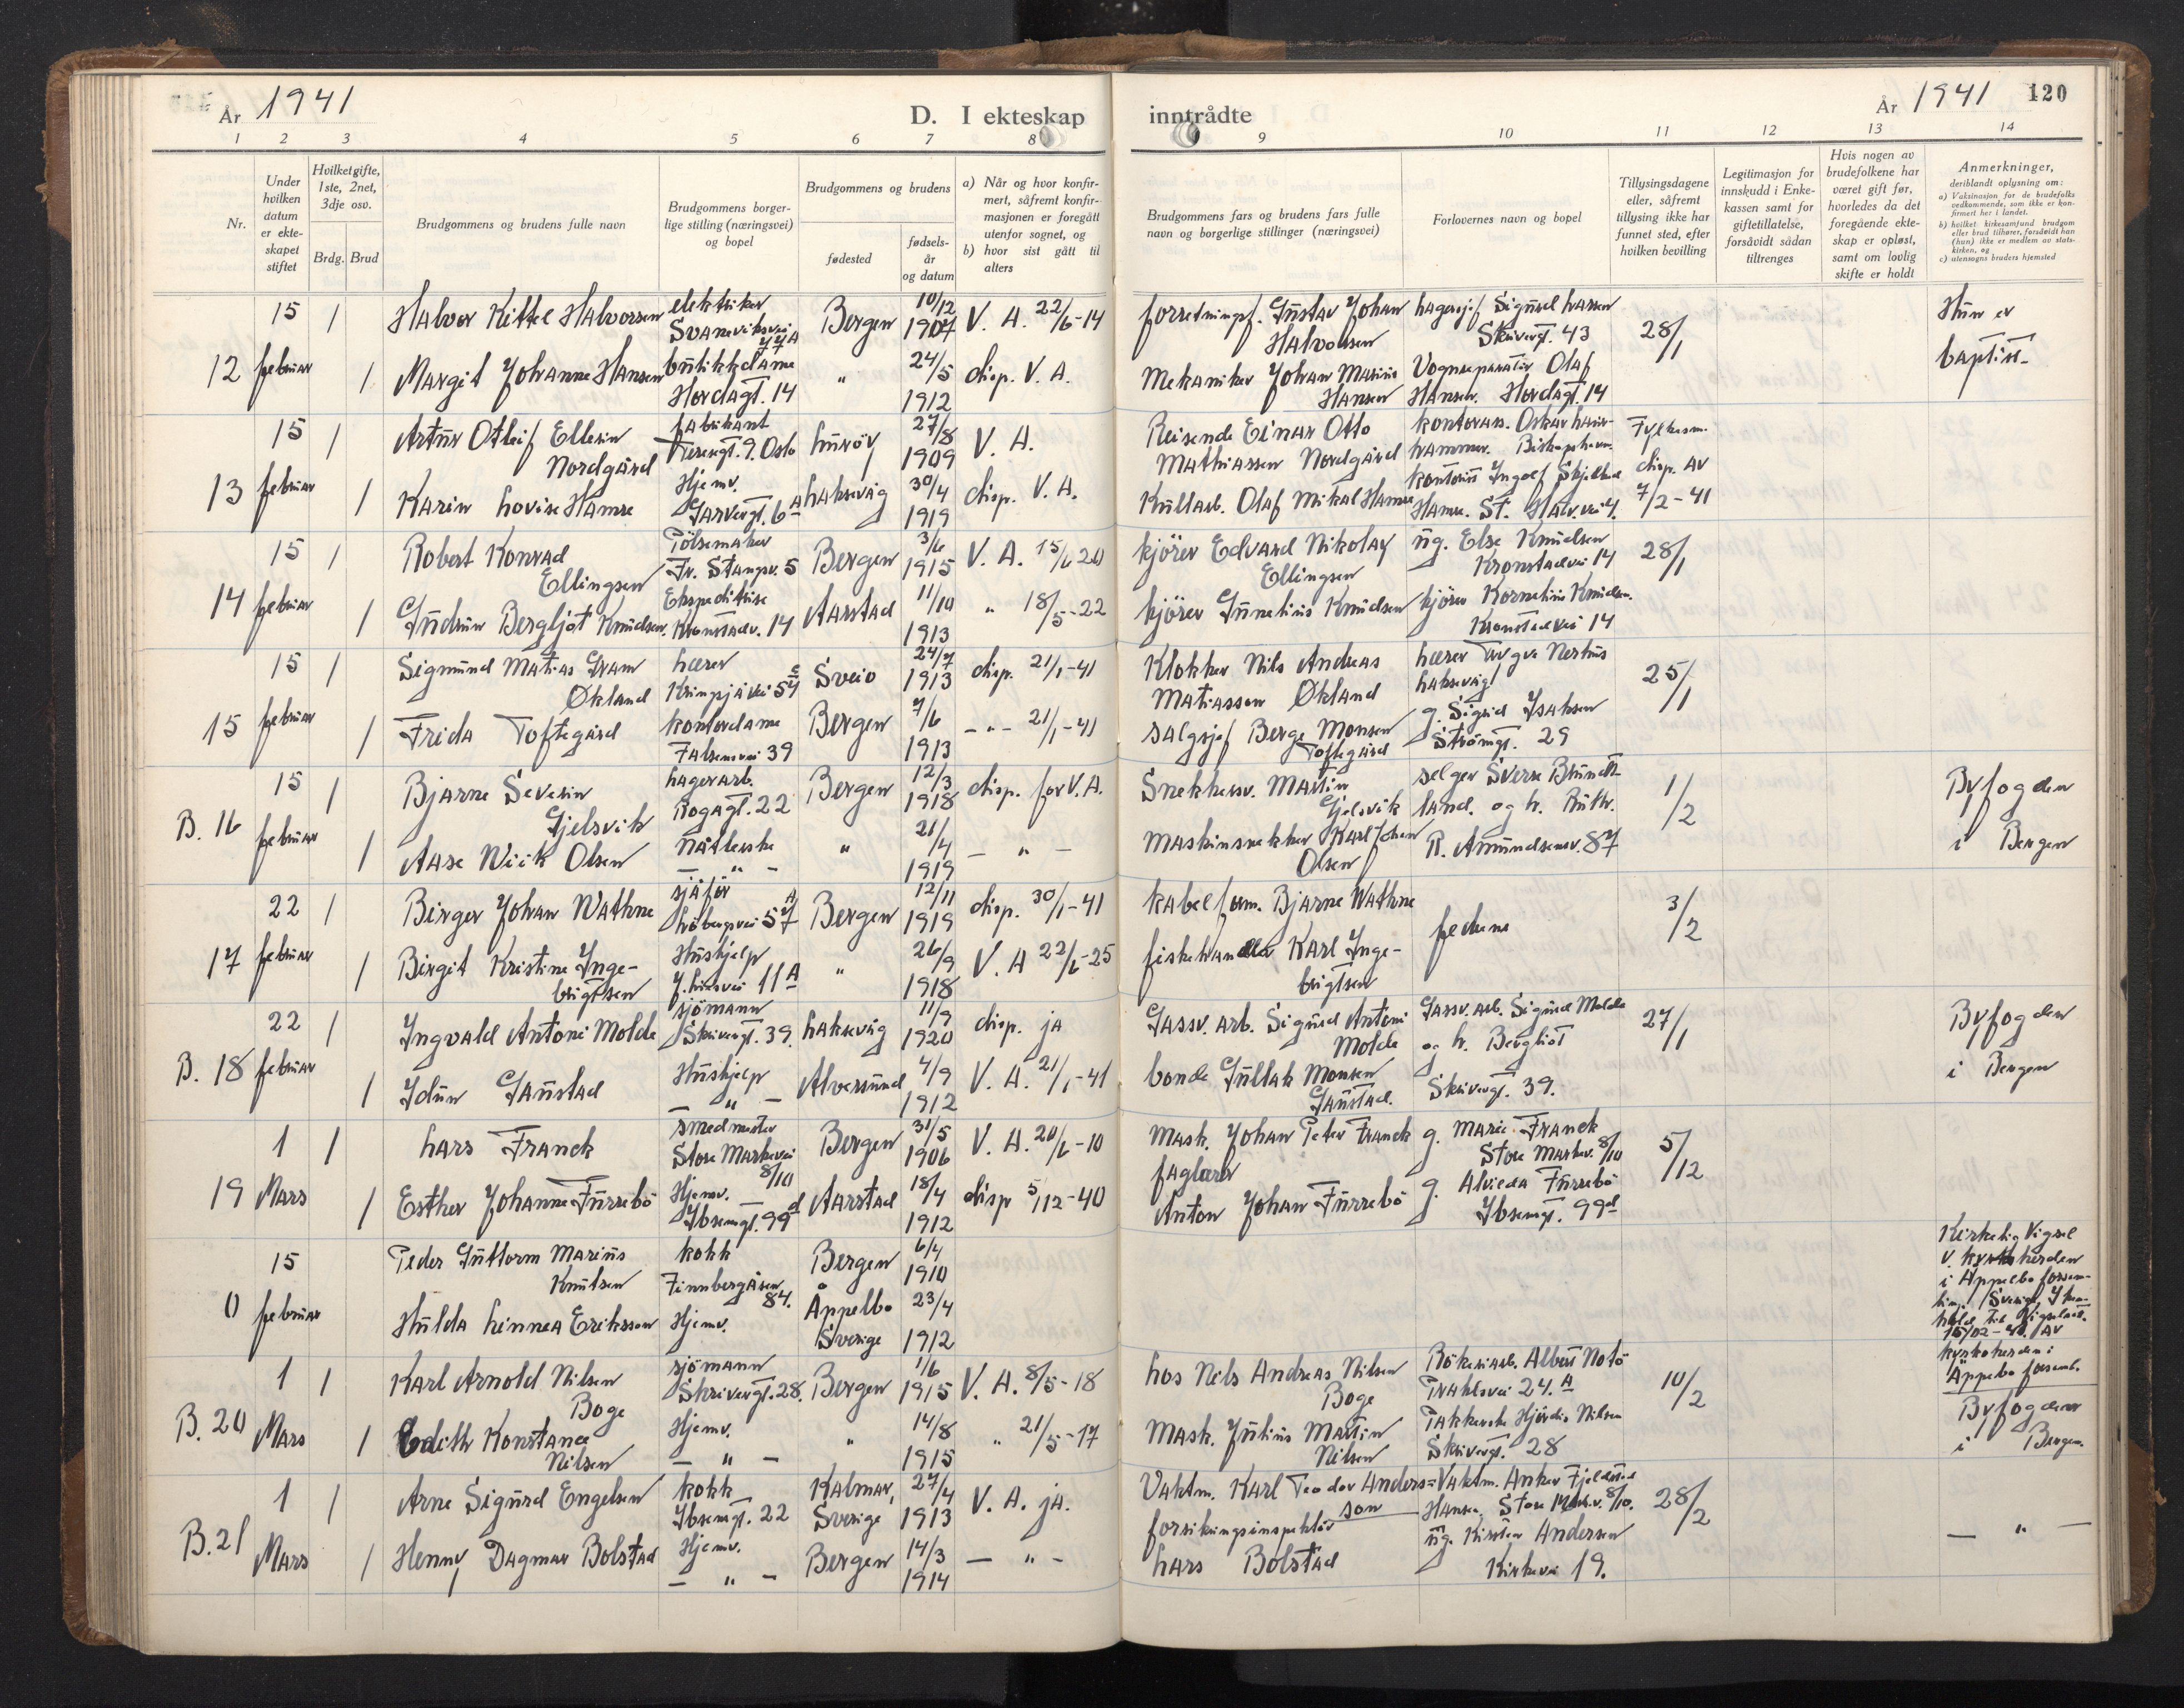 År 1941
D. I ekteskap inntrådte
År 1941 120
1 2 3 4 5 6 7 8 9 10 11 12 13 14
Nr.
Under hvilken datum er ekteskapet stiftet
Hvilket gifte, 1ste, 2net, 3dje osv.
Brdg. Brud
Brudgommens og brudens fulle navn
Brudgommens borgerlige stilling (næringsvei) og bopel
Brudgommens og brudens
fødested
fødselsår og datum
a) Når og hvor konfirmert, såfremt konfirmasjonen er foregått utenfor sognet, og
b) hvor sist gått til alters
Brudgommens fars og brudens fars fulle navn og borgerlige stillinger (næringsvei)
Forlovernes navn og bopel
Tillysingsdagene eller, såfremt tillysing ikke har funnet sted, efter hvilken bevilling
Legitimasjon for innskudd i Enkekassen samt for giftetillatelse, forsåvidt sådan tiltrenges
Hvis nogen av brudefolkene har været gift før, hvorledes da det foregående ekteskap er opløst, samt om lovlig skifte er holdt
Anmerkninger, deriblandt oplysning om:
a) Vaksinasjon for de brudefolks vedkommende, som ikke er konfirmert her i landet.
b) hvilket kirkesamfund brudgom eller brud tilhører, forsåvidt han (hun) ikke er medlem av statskirken, og
c) utensogns bruders hjemsted
12 15 februar 1 Halvor Kittel Halvorsen elektriker Svaneviksvei 77A Bergen 10/12 1907 V. A. 22/6-14 forretningsf. Gustav Johan Halvorsen lagersjef Sigurd Larsen Skivergt. 43 28/1 Hun er baptist
1 Margit Johanne Hansen butikkdame Hordagt. 14 " 24/5 1912 disp. V. A. Mekaniker Johan Marius Hansen Vognreparatør Olaf Hansen. Hordagt. 14
13 15 februar 1 Artur Otleif Ellesin Nordgård fabrikant 9. Oslo Lurøy 27/8 1909 V. A. Reisende Einar Otto Mathiassen Nordgård kontorass. Oskar hammer. Fylkesm. disp. av 7/2-41
1 Karin Lovise Hamre Hjemv. Garvergt. 6A Laksevåg 30/4 1919 disp. V. A. Kullarb. Olaf Mikal Hamre kontorist Ingolf Hamre.
14 15 februar 1 Robert Konrad Ellingsen Pølsemaker Fr. Stangsv. 5 Bergen 3/6 1915 V. A. 15/6 20 kjører Edvard Nikolay Ellingsen ug. Else Knudsen Kronstadvei 14 28/1
1 Gudrun Bergljot Knudsen. Ekspeditrise Kronstadv. 14 Aarstad 11/10 1913 " 18/5-22 kjører Gunelius Knudsen kjører Kornelius Knudsen. Kronstadvei 14
15 15 februar 1 Sigmund Matias Gram Økland Lærer Sveio 24/7 1913 disp. 21/1-41 Klokker Nils Andreas Matiassen Økland Lærer Laksevåg 25/1
1 Frida Toftegård kontordame Falsensvei 39 Bergen 7/6 1913 - " - 21/1-41 salgsjef Berge Monsen Toftegård g. Sigrid Isaksen Strømgt. 29
B. 16 15 februar 1 Bjarne Severin Gjelsvik Lagerarb. Rogagt. 22 Bergen 12/3 1918 disp. for V. A. Snekkersv. Martin Gjelsvik selger Sverre og h. Ruth. 1/2 Byfogden i Bergen
1 Aase Wiik Olsen Nåtlerske - " - " 21/4 1919 - " - Maskinsnekker Karl Johan Olsen R. Amundsensv. 87
17 22 februar 1 Birger Johan Wathne sjåfør Løbergsvei 57A Bergen 12/11 1919 disp. 30/1-41 kabelform. Bjarne Wathne fedrene 3/2
1 Birgit Kristine Ingebrigtsen Hushjelp J. Liesvei 11A " 26/9 1918 V. A 22/6-25 fiskehandler Karl Ingebrigtsen
B. 18 22 februar 1 Ingvald Antoni Molde sjömann Skivergt. 39. Laksevåg 11/9 1920 disp. ja Gassv. arb. Sigurd Antoni Molde Gassv. arb. Sigurd Molde og h. Bergliot Skivergt. 39. 27/1 Byfogden i Bergen
1 Idun Gaustad Hushjelp - " - Alversund 4/9 1912 V. A. 21/1-41 bonde Gullak Monsen Gaustad.
19 1 Mars 1 Lars Franck smedmester Store Markevei 8/10 Bergen 31/5 1906 V. A. 20/6-10 Mask. Johan Peter Franck g. Marie Franck Store Markev. 8/10 5/12
1 Esther Johanne Furrebö Hjemv. Ibsensgt. 99d Aarstad 18/4 1912 disp 5/12-40 faglærer Anton Johan Furrebö g. Alvieda Furrebö Ibsensgt. 99d
0 15 februar Peder Guttorm Marius Knutsen kokk Finnbergåsen 84. Bergen 6/4 1910
Hulda Linnea Eriksson Hjemv. Äppelbo Sverige 23/4 1912
Kirkelig Vigsel v. kyrkoherden i Äppelbo forsamling. Sverige
kyrkoherden i Äppelbo forsaml.
B. 20 1 Mars 1 Karl Arnold Nilsen Boge sjömann Skrivergt. 28. Bergen 1/6 1915 V. A. 8/5-18 los Nils Andreas Nilsen Boge Albert Notö 24. A 10/2 Byfogden i Bergen.
1 Edith Konstance Nilsen Hjemv. - " - " 14/8 1915 " 21/5-17 Mask. Julius Martin Nilsen Pakkerske Hjördis Nilsen Skivergt. 28
B. 21 1 Mars 1 Arne Sigurd Engelsen kokk Ibsensgt. 22 Kalmar, Sverige 27/4 1913 V. A. ja. Vaktm. Karl Teodor Andersson Vaktm. Anker Fjeldstad Hansen. Store Markv. 8/10. 28/2 - " -
1 Henny Dagmar Bolstad Hjemv. - " - Bergen 14/3 1914 - " - forsikringsinspektør Lars Bolstad ug. Kirsten Andersen Kirkevei 19.